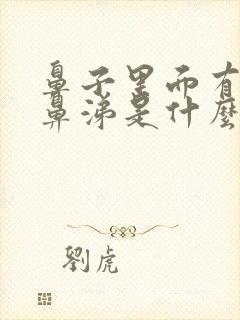 鼻子里而有
鼻涕是什麼
劉虎